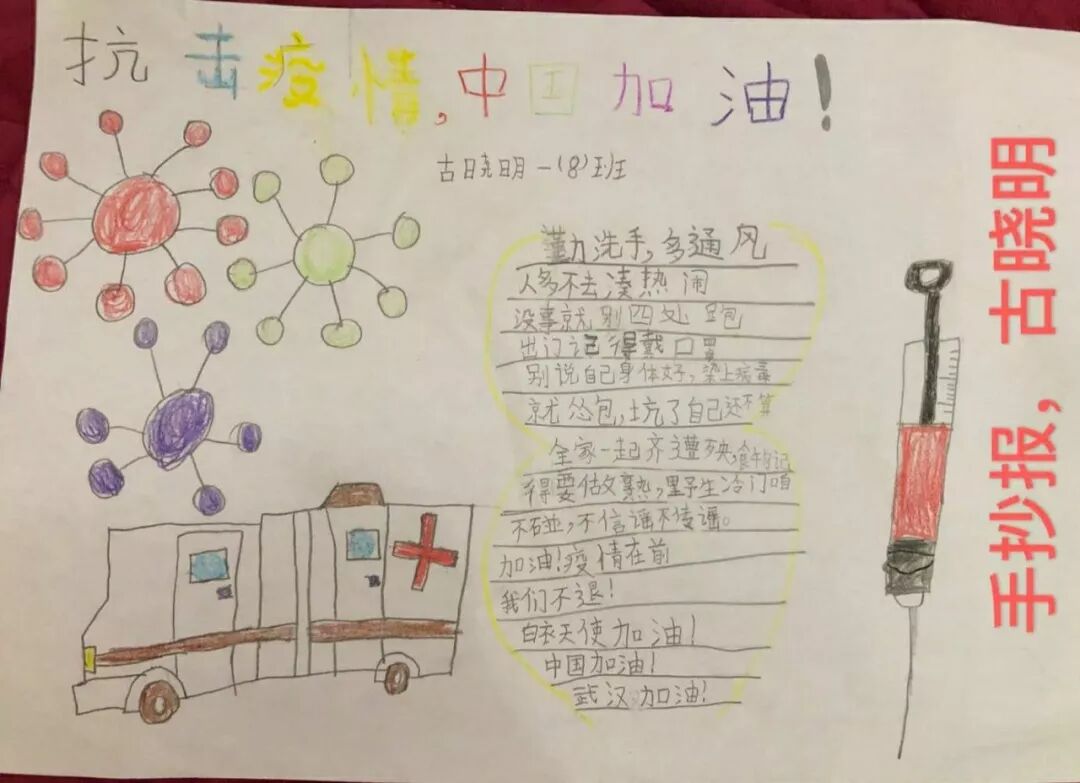 抗击疫情,中国加油!
古晓明一(8)班
勤洗手,多通风
人多不去凑热闹
没事就别四处跑
出门记得戴口罩
别说自己身体好,染上病毒
就怂包,坑了自己还不算
全家一起齐遭殃,食物记
得要做熟,野生冷门咱
不碰,不信谣不传谣。
加油!疫情在前
我们不退!
白衣天使加油!
中国加油!
武汉加油!
手抄报,古晓明